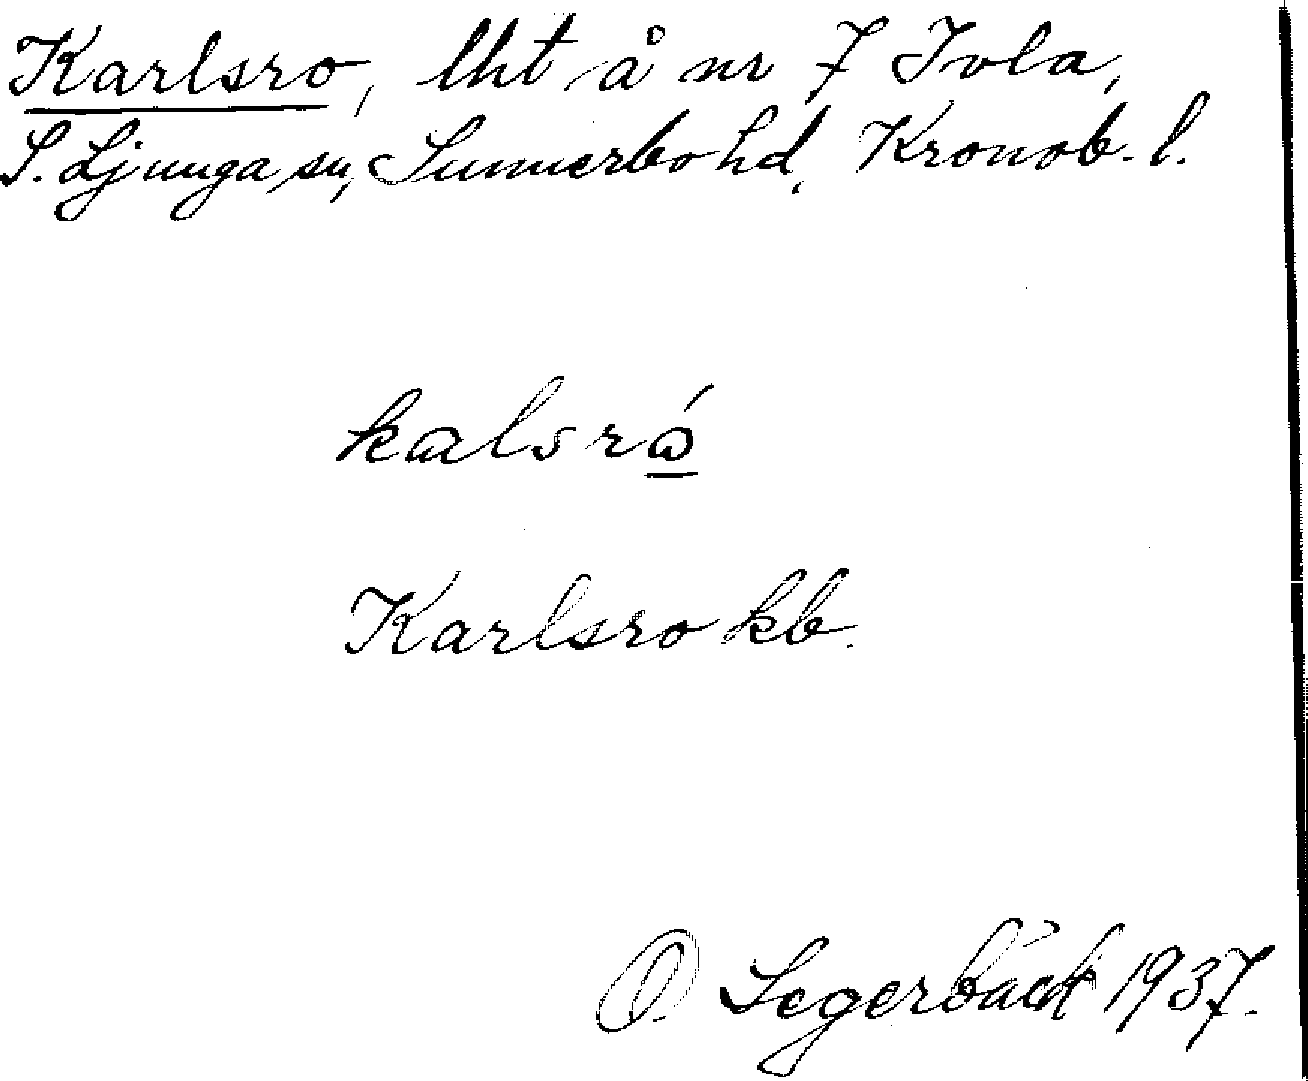 Karlsro, lht å nr 7 Ivla,
S. Ljunga sn, Sunnerbo hd, Kronob. l.
kalsró
Karlsro kb.
O. Segerbäck 1937.